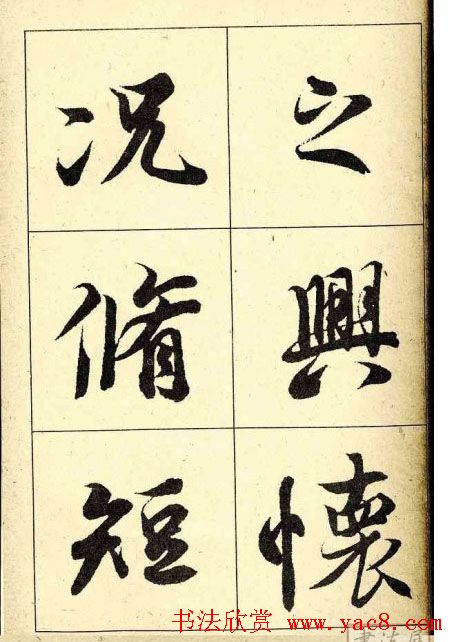 之興懷
況脩短
书法欣赏 www.yac8.com